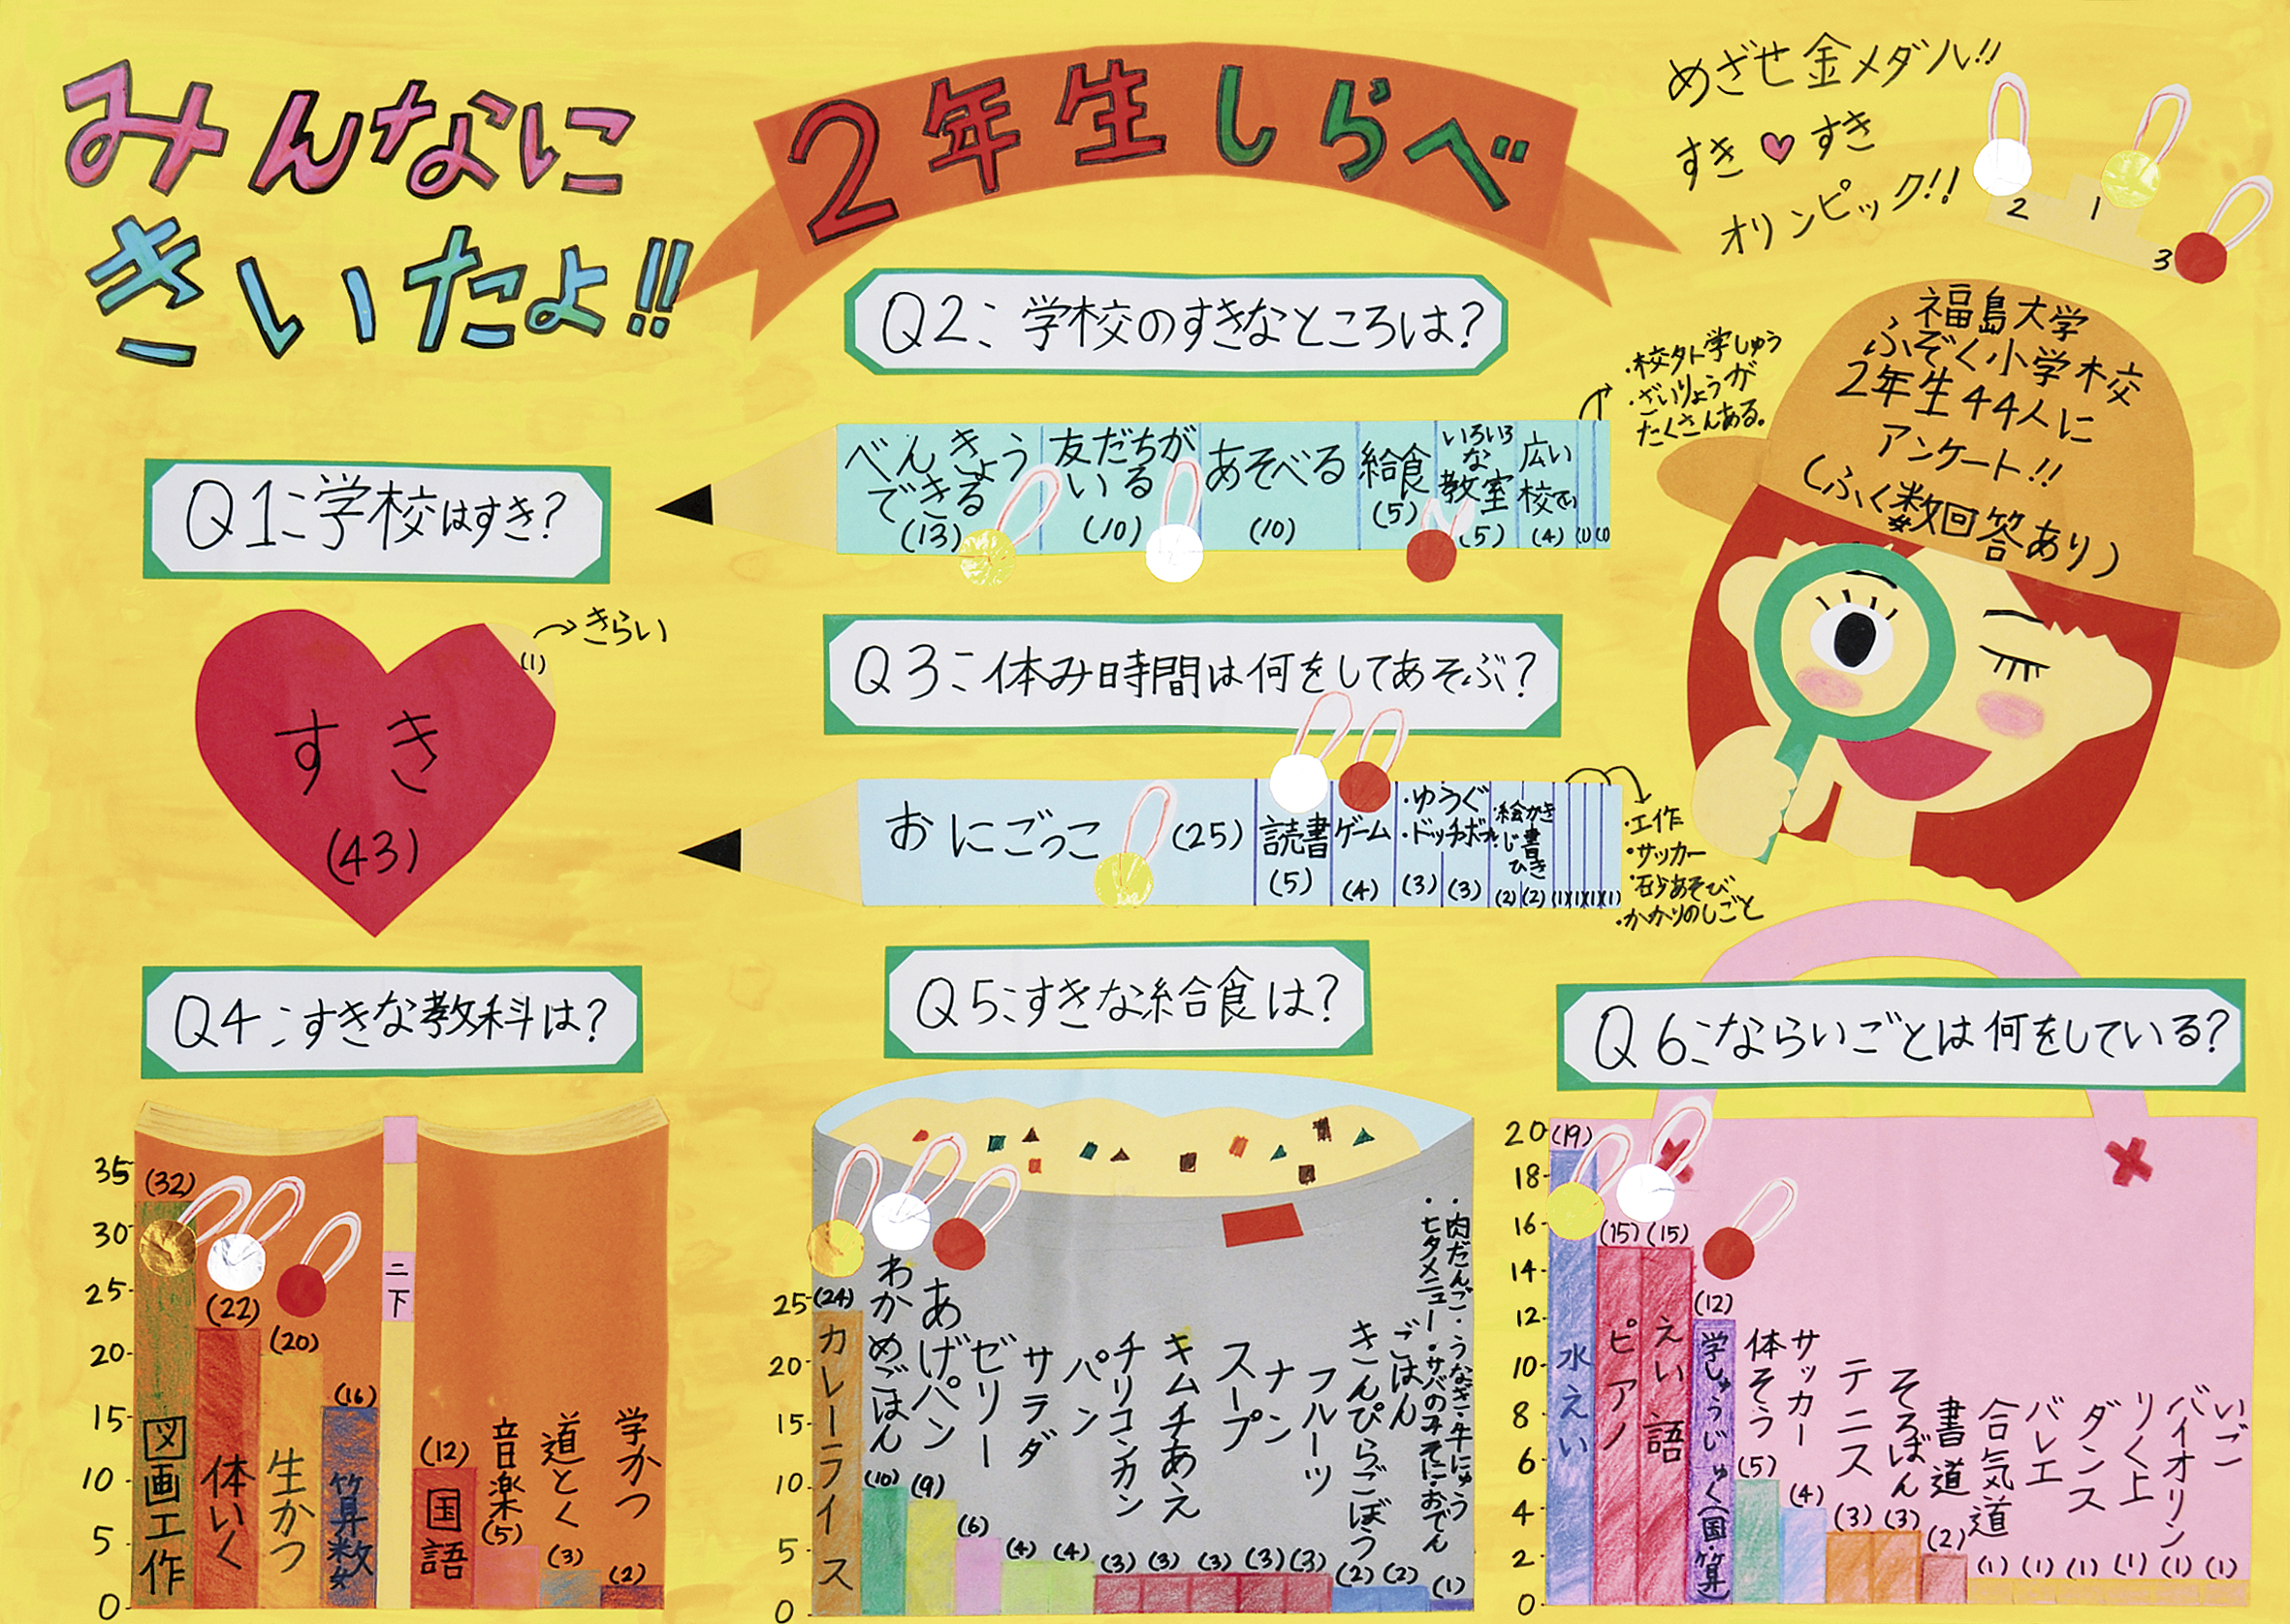 みんなに
きいたよ!!
2年生しらべ
めざせ金メダル!!
すき♥すき
オリンピック!!
2
1
3
福島大学
ふぞく小学校
2年生44人に
アンケート!!
(ふく数回答あり)
Q1:学校はすき?
すき
(43)
(1)
→きらい
Q2:学校のすきなところは?
べんきょう
できる
(13)
友だちが
いる
(10)
あそべる
(10)
給食
(5)
いろいろ
な
教室
(5)
広い
校てい
(4)
(1)
(1)
・校外学しゅう
・ざいりょうが
たくさんある。
Q3:休み時間は何をしてあそぶ?
おにごっこ
(25)
読書
(5)
ゲーム
(4)
・ゆうぐ
・ドッチボール
(3)
(3)
・絵かき
じ書ひき
(2)
(2)
(1)
(1)
(1)
(1)
・工作
・サッカー
・石少あそび
・かかりのしごと
Q4:すきな教科は?
35
30
25
20
15
10
5
0
(32)
図画工作
(22)
体いく
(20)
生かつ
(16)
算数
二下
(12)
国語
音楽
(5)
道とく
(3)
学かつ
(2)
Q5:すきな給食は?
25
20
15
10
5
0
(24)
カレーライス
わかめごはん
(10)
あげパン
(9)
ゼリー
(6)
サラダ
(4)
パン
(4)
チリコンカン
(3)
キムチあえ
(3)
スープ
(3)
ナン
(3)
フルーツ
(3)
きんぴらごぼう
(2)
ごはん
(2)
・肉だんご・うなぎ・牛にゅう
・七夕メニュー・サバのみそに・おでん
(1)
Q6:ならいごとは何をしている?
20
18
16
14
12
10
8
6
4
2
0
(19)
水えい
(15)
ピアノ
(15)
えい語
(12)
学しゅうじゅく(国・算)
体そう
(5)
サッカー
(4)
テニス
(3)
そろばん
(3)
書道
(2)
合気道
(1)
バレエ
(1)
ダンス
(1)
りく上
(1)
バイオリン
(1)
いご
(1)